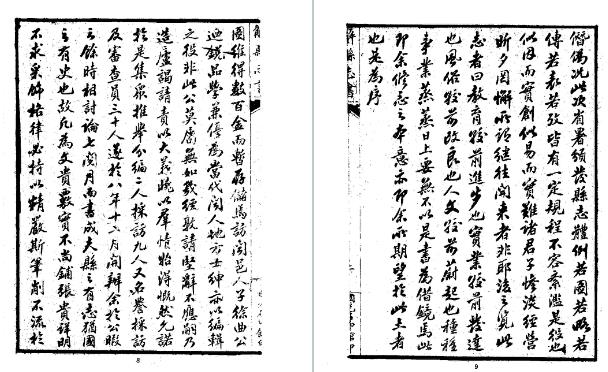 圖維得數百金而暫存儲焉訪聞邑人子徐曲公
迺銳品學兼優為當代聞人地方士紳亦以編輯
之役非此公莫屬無如幾經敦請堅辭不應嗣乃
造廬謁請責以大義曉以羣情始得慨然允諾
於是集眾推舉分編二人採訪九人又名譽採訪
及審查員三十人遂於八年十二月開辦余於公暇
之餘時相討論七閱月而書成夫縣之有志猶國
之有史也故凡為文貴覈實不尚鋪張貴詳明
不求采飾格律必持以精嚴斯筆削不流於
8
僭偽況此次省署頒發縣志體例若圖若略若
傳若表若考皆有一定規程不容紊濫是役也
似因而實創似易而實難諸君子慘淡經營
昕夕罔懈所謂繼往開來者非耶後之覽此
志者曰教育較前進步也實業較前發達
也風俗較前改良也人文較前蔚起也種種
事業蒸蒸日上要無不以是書為借鏡焉此
即余修志之本意亦即余所期望於此土者
也是為序
9